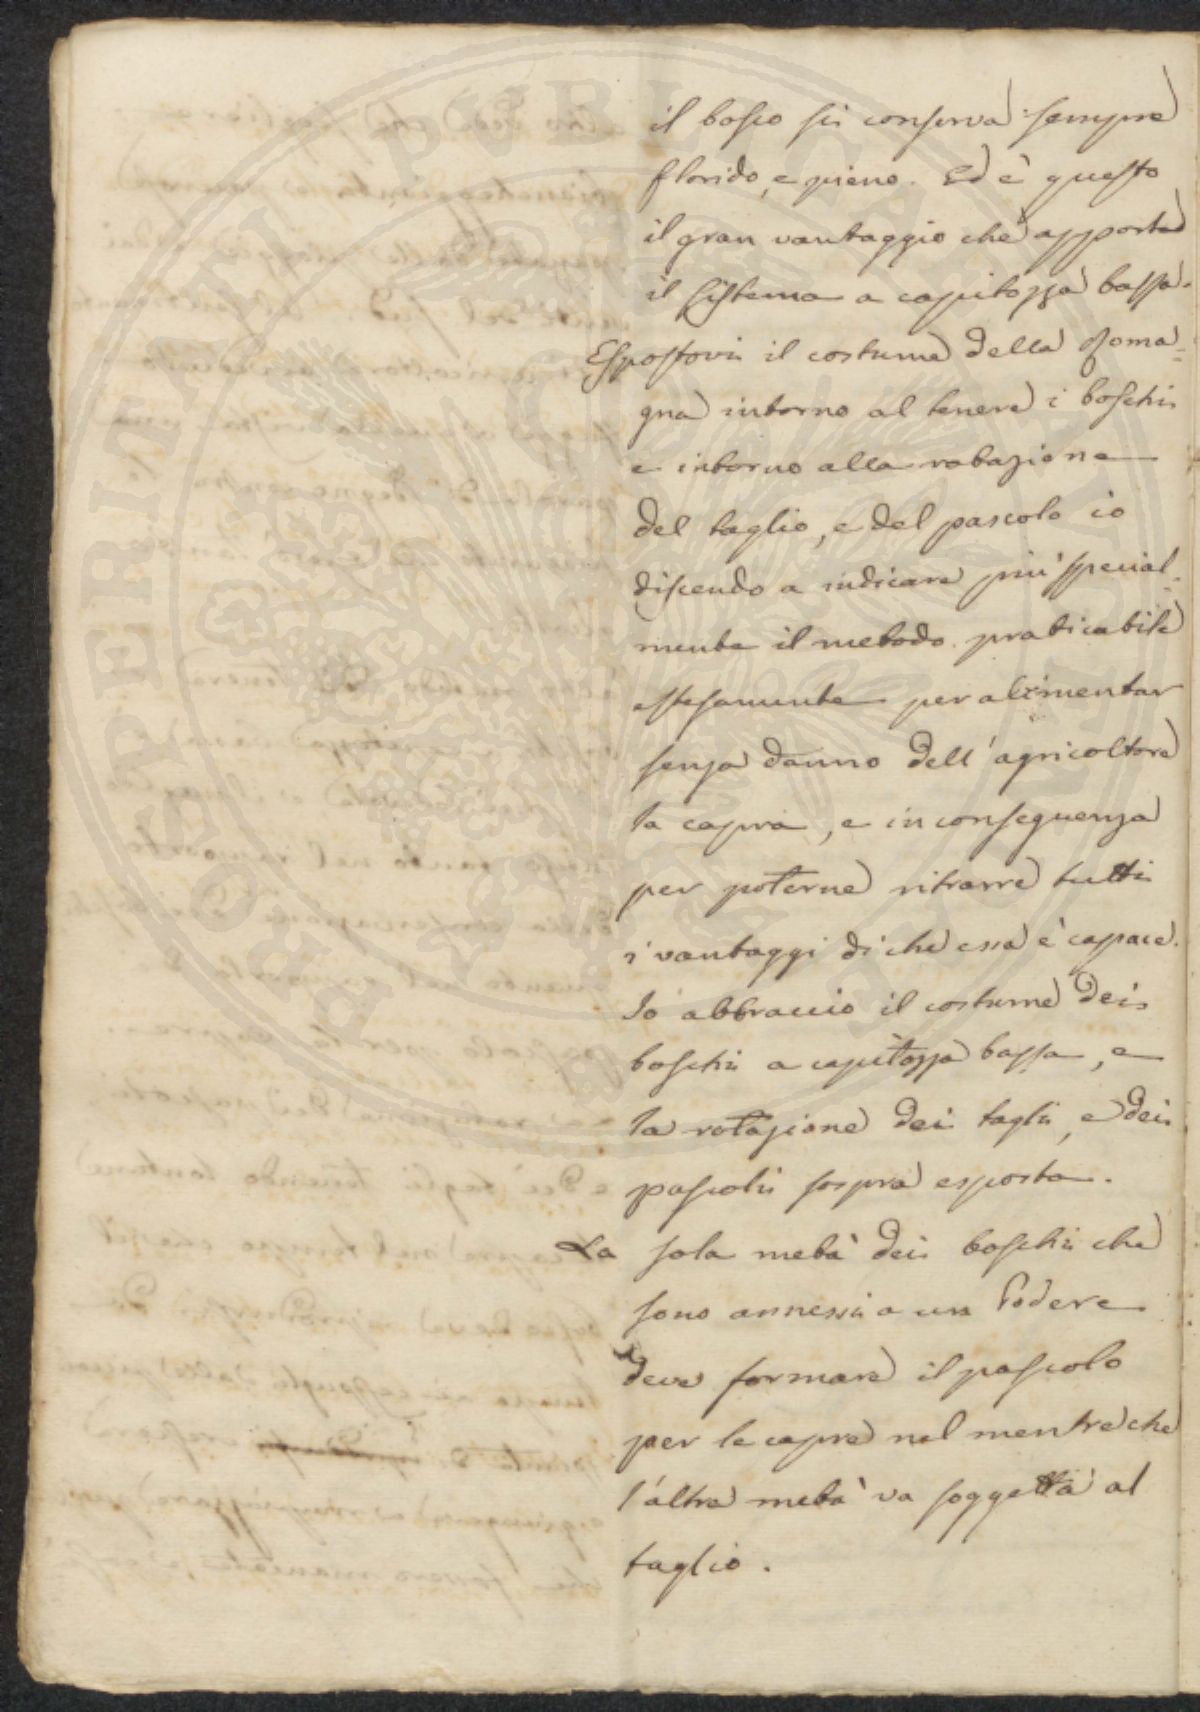 il bosco si conserva sempre
florido, e pieno. Ed è questo
il gran vantaggio che apporta
il sistema a capitozza bassa.
Espostovi il costume della Roma=
gna intorno al tenere i boschi
e intorno alla rotazione
del taglio, e del pascolo io
discendo a indicare più special=
mente il metodo praticabile
estesamente per alimentar
senza danno dell'agricoltore
la capra, e in conseguenza
per poterne ritrarre tutti
i vantaggi di che essa è capace.
Io abbraccio il costume dei
boschi a capitozza bassa, e
la rotazione dei tagli, e dei
pascoli sospra esposta.
La sola metà dei boschi che
sono annessi a un Podere
deve formare il pascolo
per le capre nel mentre che
l'altra metà va soggetta al
taglio.
PROSPERITATI PUBLICAE AUGENDAE